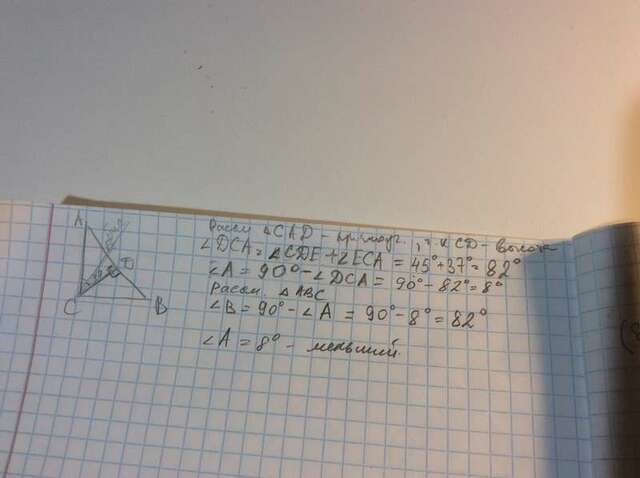 A
D
C
B
Рассм ΔCAD - прямоуг., т.к CD - высота
∠DCA = ∠CDE + ∠ECA = 45° + 37° = 82°
∠A = 90° - ∠DCA = 90° - 82° = 8°
Рассм. ΔABC
∠B = 90° - ∠A = 90° - 8° = 82°
∠A = 8° - меньший.